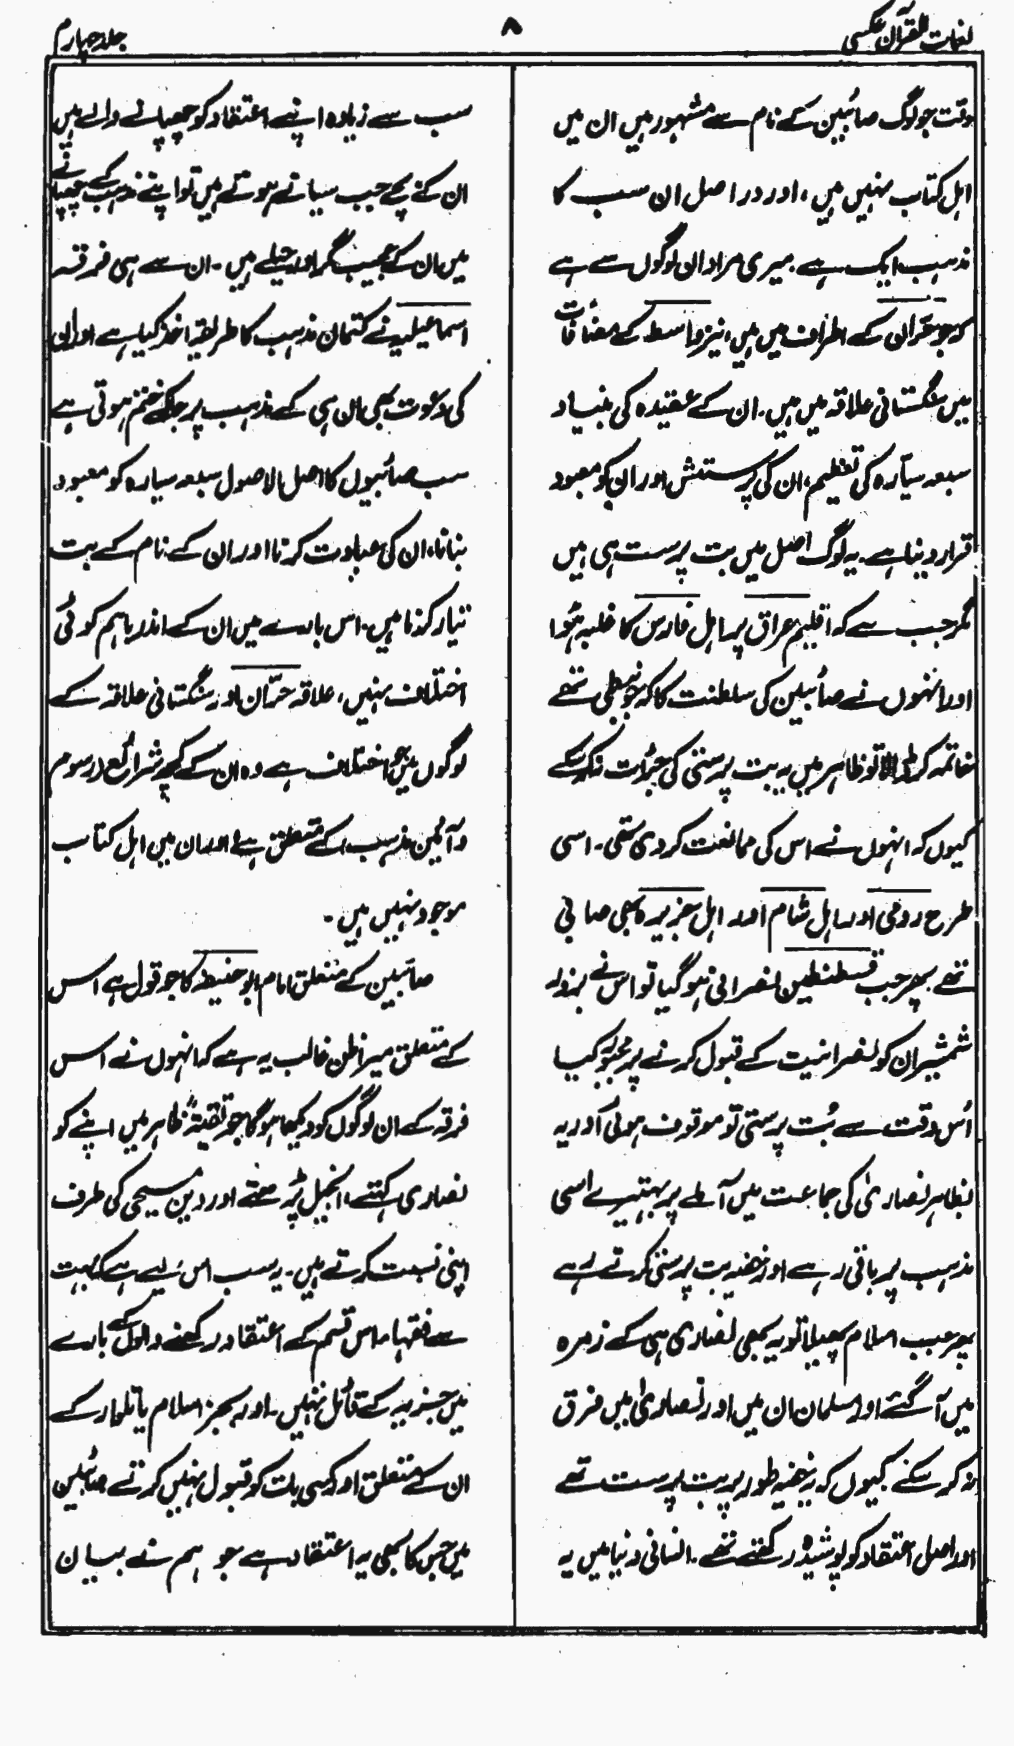 لغات القرآن عکسی
۸
جلد چہارم
وقت جو لوگ صائبین کے نام سے مشہور ہیں ان میں
اہل کتاب نہیں ہیں، اور در اصل ان سب کا
مذہب ایک ہے میری مراد ان لوگوں سے ہے
کہ جو حران کے اطراف میں ہیں، نیز واسط کے مضافات
میں سنگستانی علاقہ میں ہیں۔ ان کے عقیدہ کی بنیاد
سبعہ سیّارہ کی تعظیم، ان کی پرستش اور ان کو معبود
قرار دینا ہے۔ یہ لوگ اصل میں بت پرست ہی ہیں
مگر جب سے کہ اقلیم عراق پر اہل فارس کا غلبہ ہُوا
اور انہوں نے صائبین کی سلطنت کا کہ جو نبطی تھے
خاتمہ کر ڈالا تو ظاہر میں یہ بت پرستی کی جرأت نہ کر سکے
کیوں کہ انہوں نے اس کی ممانعت کر دی تھی۔ اسی
طرح رومی اور اہل شام اور اہل جزیرہ بھی صابی
تھے پھر جب قسطنطین نصرانی ہو گیا تو اس نے بزور
شمشیر ان کو نصرانیت کے قبول کرنے پر مجبور کیا
اُس وقت سے بُت پرستی تو موقوف ہوئی اور یہ
بظاہر نصاریٰ کی جماعت میں آ ملے پر بہتیرے اسی
مذہب پر باقی رہے اور خفیہ بت پرستی کرتے رہے
پھر جب اسلام پھیلا تو یہ بھی نصاریٰ ہی کے زمرہ
میں آ گئے اور مسلمان ان میں اور نصاریٰ میں فرق
نہ کر سکے کیوں کہ یہ خفیہ طور پر بت پرست تھے
اور اصل اعتقاد کو پوشیدہ رکھتے تھے۔ انسانی دنیا میں یہ
سب سے زیادہ اپنے اعتقاد کو چھپانے والے ہیں
ان کے بچے جب سیانے ہوتے ہیں تو اپنے مذہب کے چھپانے
میں ان کے عجیب گر اور حیلے ہیں۔ ان سے ہی فرقہ
اسماعیلیہ نے کتمان مذہب کا طریقہ اخذ کیا ہے اور ان
کی دعوت بھی ان ہی کے مذہب پر جا کے ختم ہوتی ہے
سب صائبیوں کا اصل الاصول سبعہ سیارہ کو معبود
بنانا، ان کی عبادت کرنا اور ان کے نام کے بت
تیار کرنا ہیں۔ اس بارے میں ان کے اندر باہم کوئی
اختلاف نہیں، علاقہ حرّان اور سنگستانی علاقہ کے
لوگوں میں جو اختلاف ہے وہ ان کے کچھ شرائع و رسوم
و آئین مذہب کے متعلق ہے اور ان میں اہل کتاب
موجود نہیں ہیں۔
صائبین کے متعلق امام ابو حنیفہ کا جو قول ہے اس
کے متعلق میرا ظن غالب یہ ہے کہ انہوں نے اس
فرقہ کے ان لوگوں کو دیکھا ہو گا جو تقیۃً ظاہر میں اپنے کو
نصاری کہتے، انجیل پڑھتے اور دین مسیحی کی طرف
اپنی نسبت کرتے ہیں۔ یہ سب اس لیے ہے کہ بہت
سے فقہاء اس قسم کے اعتقاد رکھنے والوں کے بارے
میں جزیہ کے قائل نہیں۔ اور بجز اسلام یا تلوار کے
ان کے متعلق اور کسی بات کو قبول نہیں کرتے صائبین
میں جس کا بھی یہ اعتقاد ہے جو ہم نے بیان